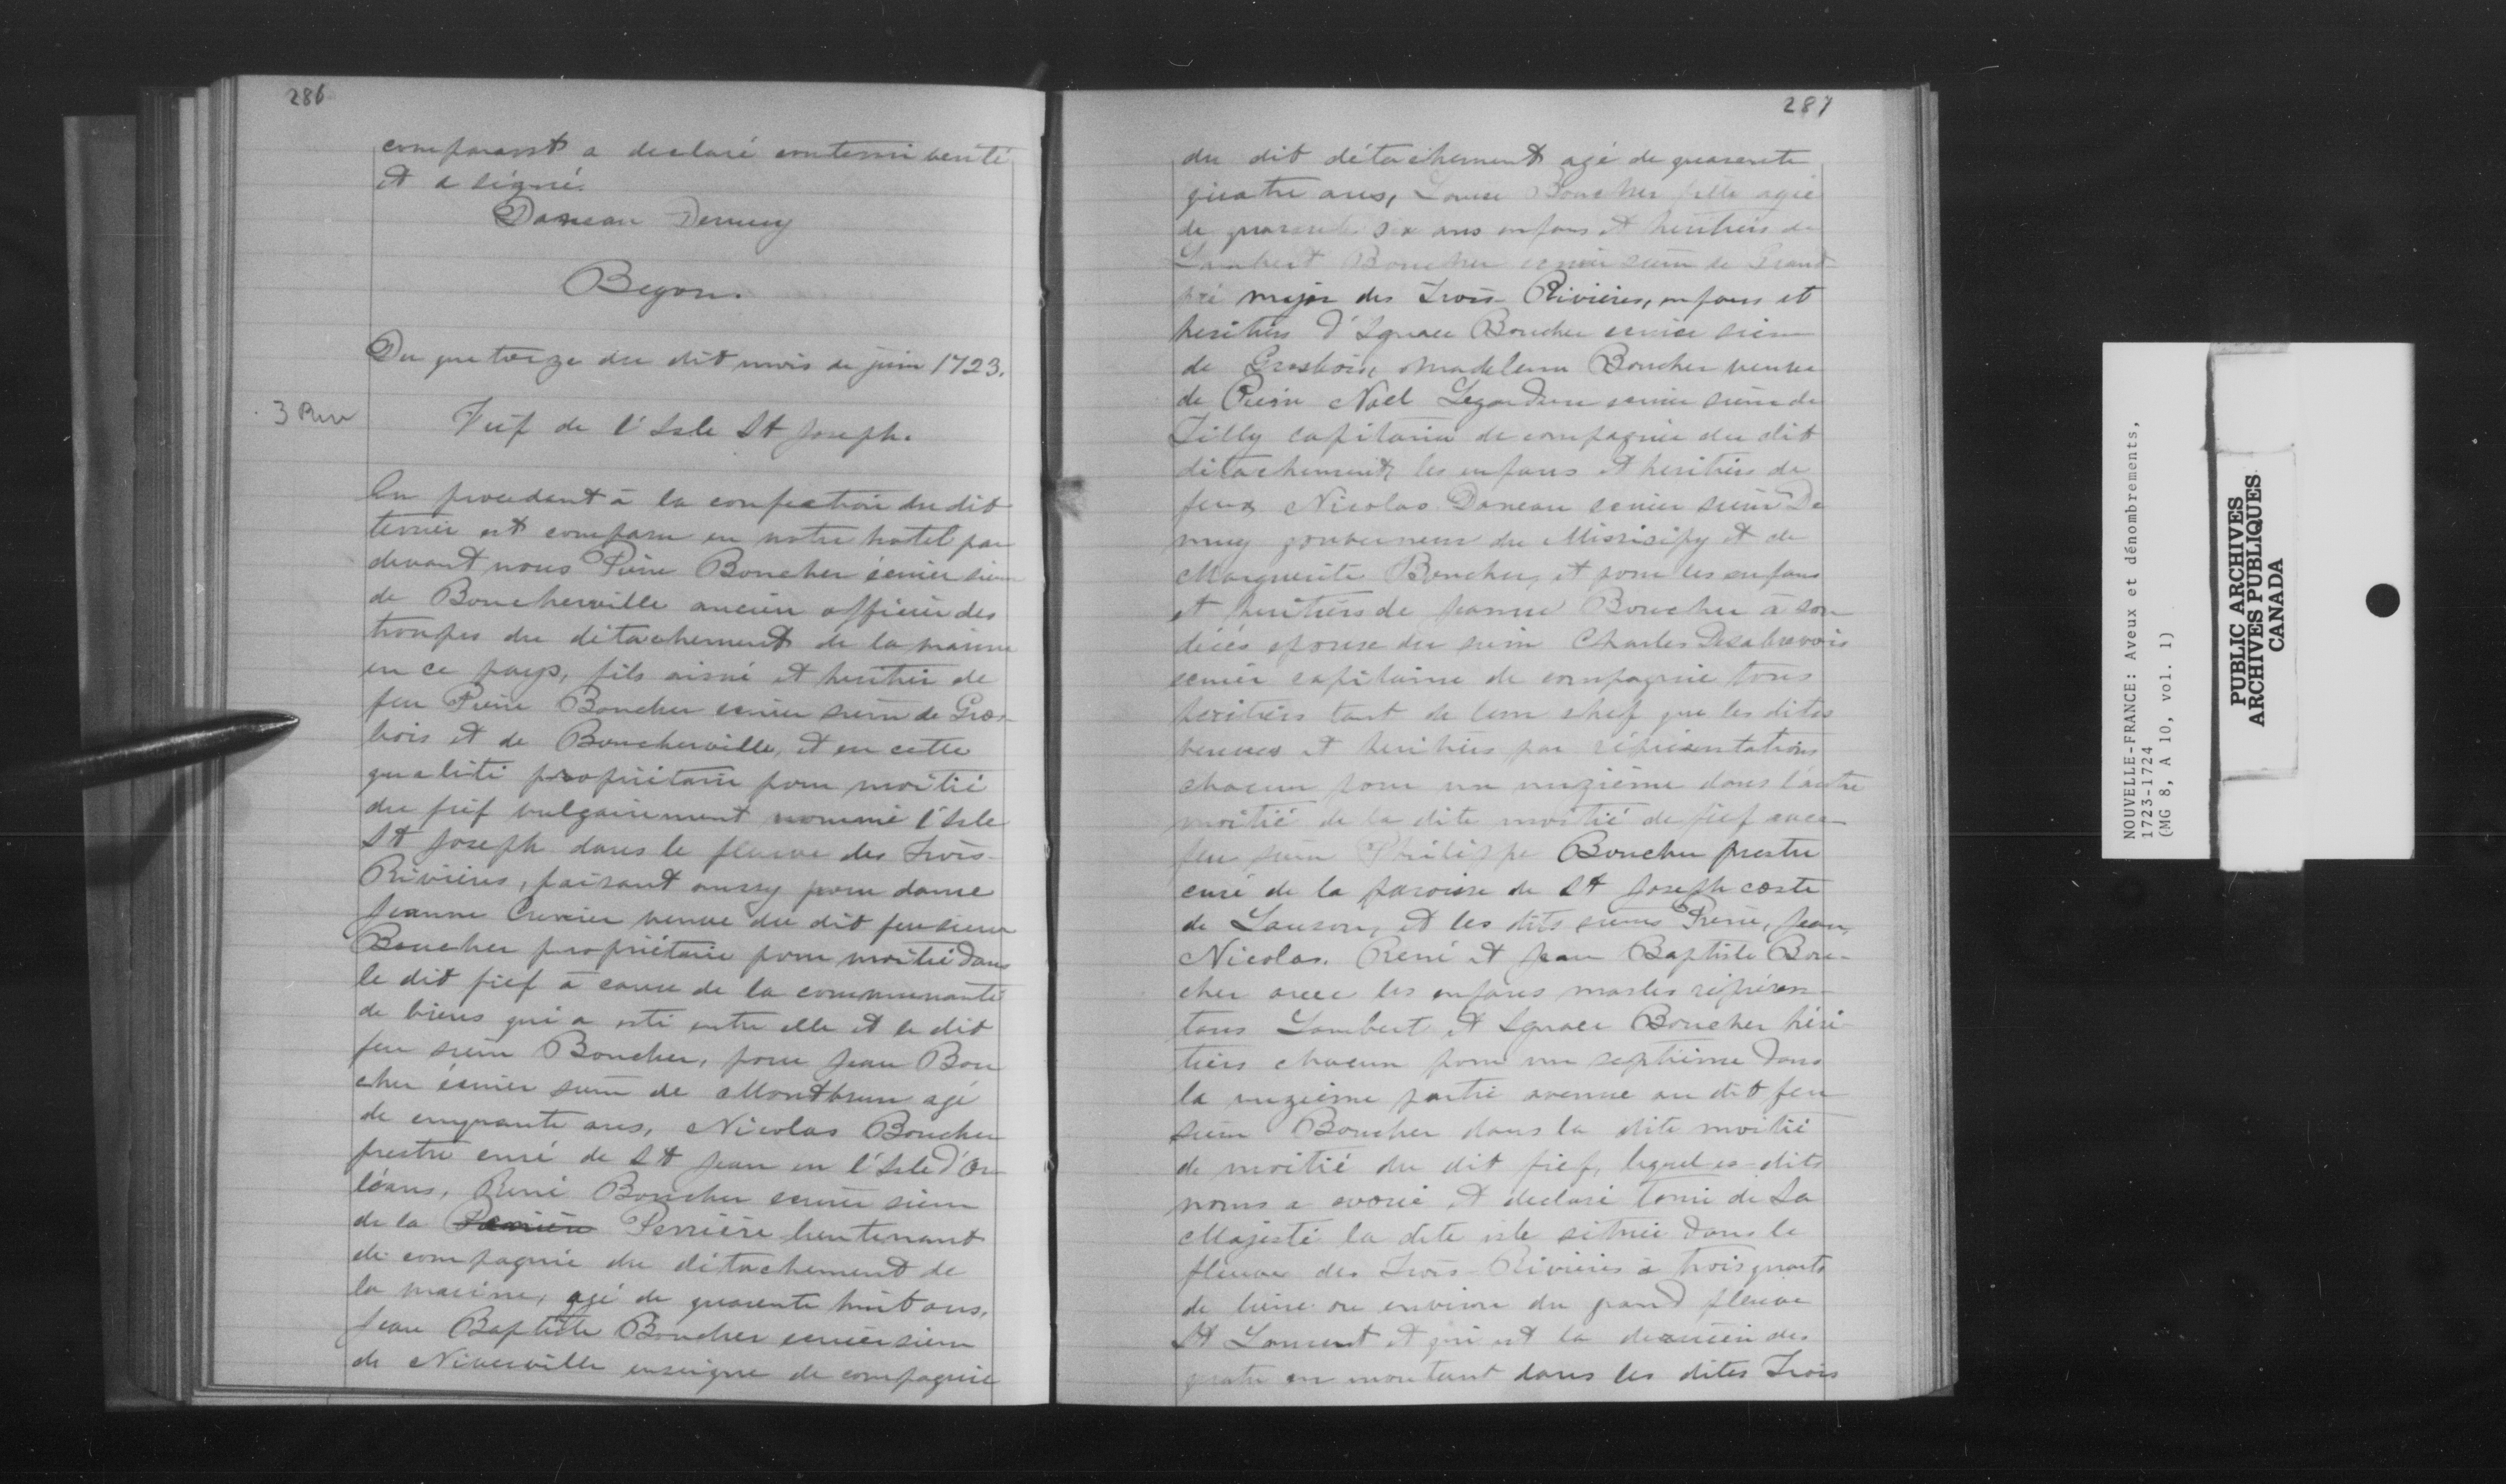 286
comparant a declaré contenir verité
et a signé.
Daneau Demuy
Begon.
Du quatorze du dit mois de juin 1723.
3 Riv
Fief de l'Isle St Joseph.
En procedant à la confection du dit
terrier est comparu en notre hotel par
devant nous Pierre Boucher écuier sieur
de Boucherville ancien officier des
troupes du détachement de la marine
en ce pays, fils aisné et heritier de
feu Pierre Boucher ecuier sieur de Gros-
bois et de Boucherville, et en cette
qualité propriétaire pour moitié
du fief vulgairement nommé l'Isle
St Joseph dans le fleuve des Trois-
Rivières, faisant aussy pour dame
Jeanne Crevier veuve du dit feu sieur
Boucher propriétaire pour moitié dans
le dit fief à cause de la communauté
de biens qui a esté entre elle et le dit
feu sieur Boucher, pour Jean Bou
cher écuier sieur de Montbrun agé
de cinquante ans, Nicolas Boucher
prestre curé de St Jean en l'Isle d'Or
léans, René Boucher ecuier sieur
de la Perrière lieutenant
de compagnie du détachement de
la marine, agé de quarente huit ans,
Jean Baptiste Boucher ecuier sieur
de Niverville enseigne de compagnie
287
du dit détachement agé de quarente
quatre ans, Louise Boucher fille agée
de quarente six ans enfans et heritiers de
Lambert Boucher ecuier sieur de Grand
pré major des Trois-Rivières, enfans et
heritiers d'Ignace Boucher ecuier sieur
de Grosbois, Madeleine Boucher veuve
de Pierre Noël Legardeur ecuier sieur de
Tilly capitaine de compagnie du dit
détachement, les enfans et heritiers de
feux Nicolas Daneau ecuier sieur De
muy gouverneur du Missisipy et de
Marguerite Boucher, et pour les enfans
et heritiers de Jeanne Boucher à son
décès epouse du sieur Charles Desabrevois
ecuier capitaine de compagnie tous
heritiers tant de leur chef que les dites
veuves et heritiers par réprésentations
chacun pour un unzième dans l'autre
moitié de la dite moitié de fief avec
feu sieur Philippe Boucher prestre
curé de la paroisse de St Joseph coste
de Lauson, et les dits sieurs Pierre, Jean,
Nicolas, René et Jean Baptiste Bou-
cher avec les enfans masles réprésen-
tans Lambert et Ignace Boucher héri-
tiers chacun pour un septième dans
la unzième partie avenue au dit feu
sieur Boucher dans la dite moitié
de moitié du dit fief, lequel es dits
noms a avoué et declaré tenir de Sa
Majesté la dite isle située dans le
fleuve des Trois-Rivières à trois quarts
de lieue ou environ du grand fleuve
St Laurent et qui est la derniere des
quatre en montant dans les dites Trois
NOUVELLE-FRANCE: Aveux et dénombrements,
1723-1724
(MG 8, A 10, vol. 1)
PUBLIC ARCHIVES
ARCHIVES PUBLIQUES
CANADA